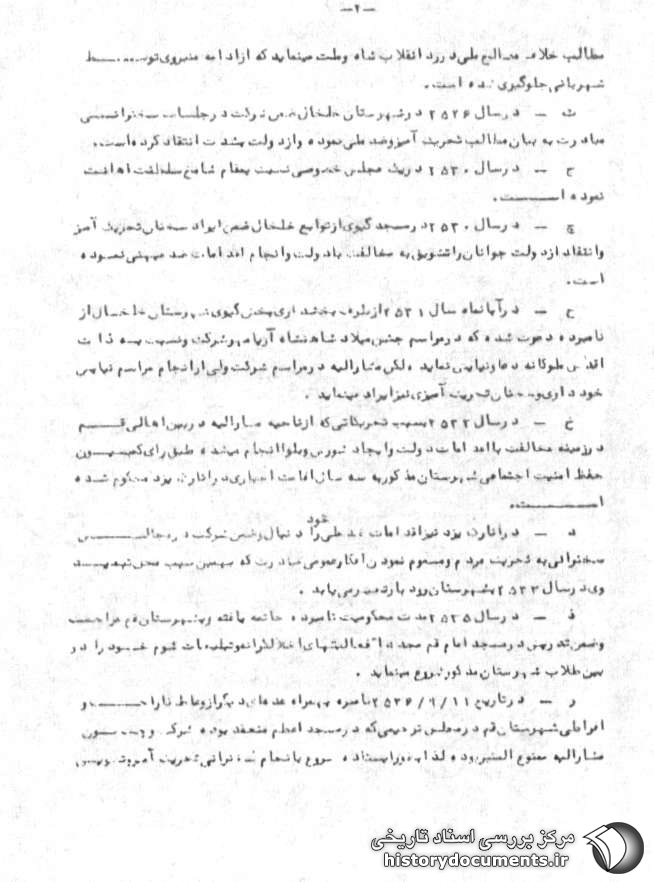 -۲-
مطالب خلاف مصالح ملی در رد انقلاب شاه و ملت مینماید که از ادامه منبر وی توسط
شهربانی جلوگیری شده است.
ث - در سال ۲۵۲۶ در شهرستان خلخال ضمن شرکت در جلسات سخنرانی
مبادرت به بیان مطالب تحریک آمیز و ضد ملی نموده و از دولت بشدت انتقاد کرده است.
ج - در سال ۲۵۳۰ در یک مجلس خصوصی نسبت بمقام شامخ سلطنت اهانت
نموده است.
چ - در سال ۲۵۳۰ در مسجد گیوی از توابع خلخال ضمن ایراد سخنان تحریک آمیز
و انتقاد از دولت جوانان را تشویق به مخالفت با دولت و انجام اقدامات ضد میهنی نموده
است.
ح - در آبانماه سال ۲۵۳۱ از طرف بخشداری بخش گیوی شهرستان خلخال از
نامبرده دعوت شده که در مراسم جشن میلاد شاهنشاه آریامهر شرکت و نسبت به ذات
اقدس ملوکانه دعا و نیایش نماید ولکن مشارالیه در مراسم شرکت ولی از انجام مراسم نیایش
خودداری و سخنان تحریک آمیزی نیز ایراد مینماید.
خ - در سال ۲۵۳۲ بسبب تحریکاتی که از ناحیه مشارالیه در بین اهالی قم
در زمینه مخالفت با اقدامات دولت و ایجاد شورش و بلوا انجام میشده طبق رای کمیسیون
حفظ امنیت اجتماعی شهرستان مذکور به سه سال اقامت اجباری در انارک یزد محکوم شده
است.
د - در انارک یزد نیز اقدامات ضد ملی خود را دنبال و ضمن شرکت در مجالس
سخنرانی به تحریک مردم و مسموم نمودن افکار عمومی مبادرت که بهمین سبب محل تبعید
وی در سال ۲۵۳۳ بشهرستان رودبار تغییر می یابد.
ذ - در سال ۲۵۳۵ مدت محکومیت نامبرده خاتمه یافته و بشهرستان قم مراجعت
و ضمن تدریس در مسجد امام قم مجددا فعالیتهای اخلالگرانه و تبلیغات شوم خود را در
بین طلاب شهرستان مذکور شروع مینماید.
ر - در تاریخ ۲۵۳۶/۹/۱۱ نامبرده بهمراه عده‌ای دیگر از وعاظ ناراحت و
افراطی شهرستان قم در مجلس ترحیمی که در مسجد اعظم منعقد بوده شرکت و چون
مشارالیه ممنوع المنبر بوده لذا بطور ایستاده شروع بانجام سخنرانی تحریک آمیز
مرکز بررسی اسناد تاریخی
historydocuments.ir